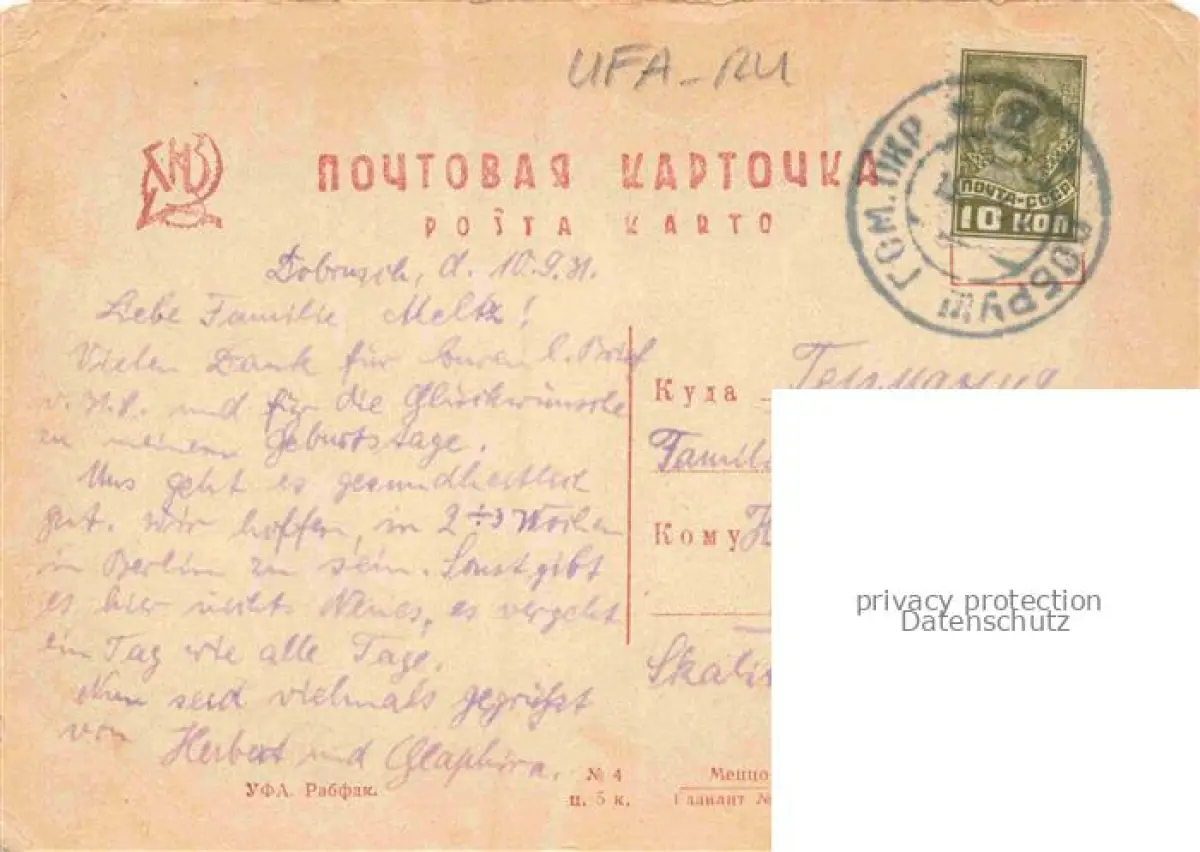 UFA-RU
ПОЧТОВАЯ КАРТОЧКА
POSTA KARTO
ПОЧТА-СССР
10 КОП
ГОМ. ОКР
ДОБРУШ
Dobrusch, d. 10.9.31.
Liebe Familie Meltz!
Vielen Dank für Euren l. Brief
und für die Glückwünsche
zu meinem Geburtstage.
Uns geht es gesundheitlich
gut. Wir hoffen, in 2÷3 Wochen
in Berlin zu sein. Sonst gibt
es hier nichts Neues, es vergeht
ein Tag wie alle Tage.
Nun seid vielmals gegrüßt
von Herbert und Glaphira.
Куда Германия
Famili
Кому H
Skali
УФА. Рабфак.
№ 4
ц. 5 к.
Менцо
Главлит №
privacy protection
Datenschutz